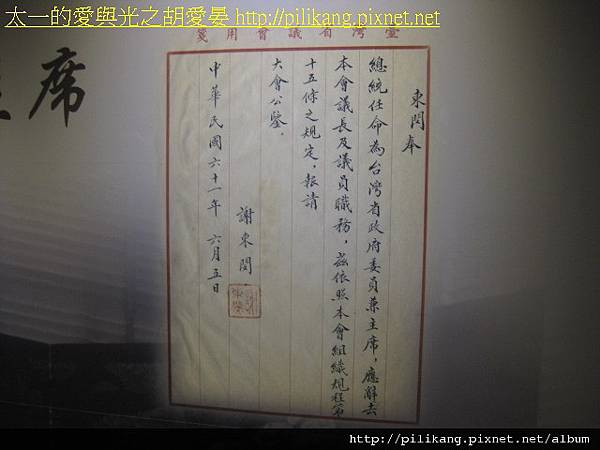 太一的愛與光之胡愛晏 http://pilikang.pixnet.net
箋用會議省灣臺
主席
東閔奉
總統任命為台灣省政府委員兼主席，應辭去
本會議長及議員職務，茲依照本會組織規程第
十五條之規定，報請
大會公鑒。
謝東閔
中華民國六十一年六月五日
http://pilikang.pixnet.net/album